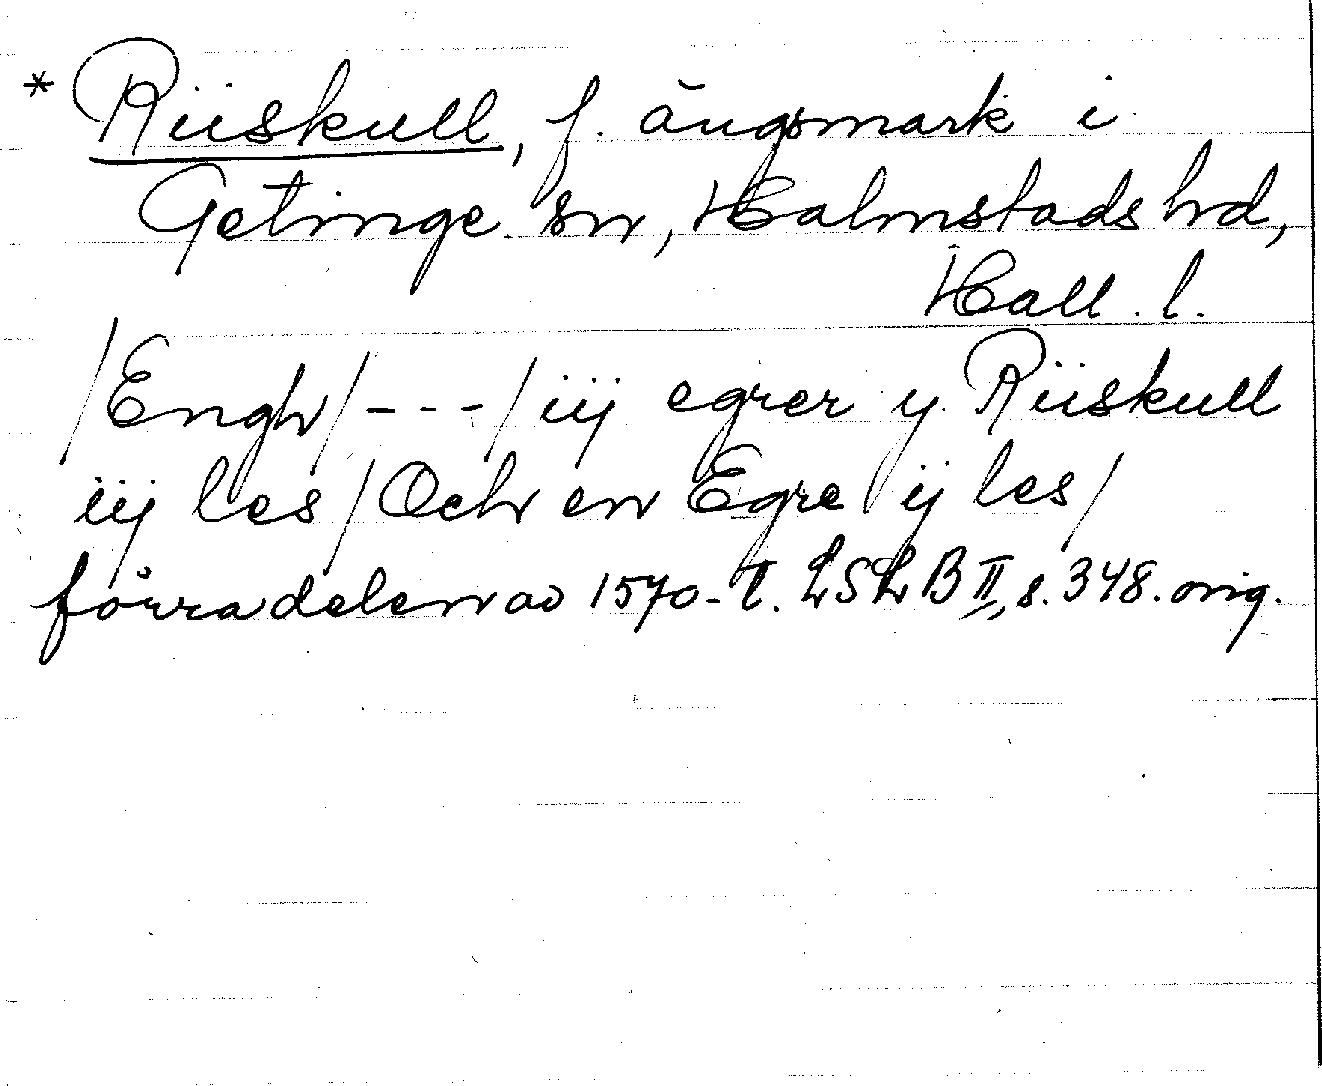 * Riiskull, f. ängsmark i
Getinge sn, Halmstads hd,
Hall. l.
/Engh/---/iij egrer y Riiskull
iij les/Och en Egre ij les/
förra delen av 1570-t. LSLB II, s. 348. orig.